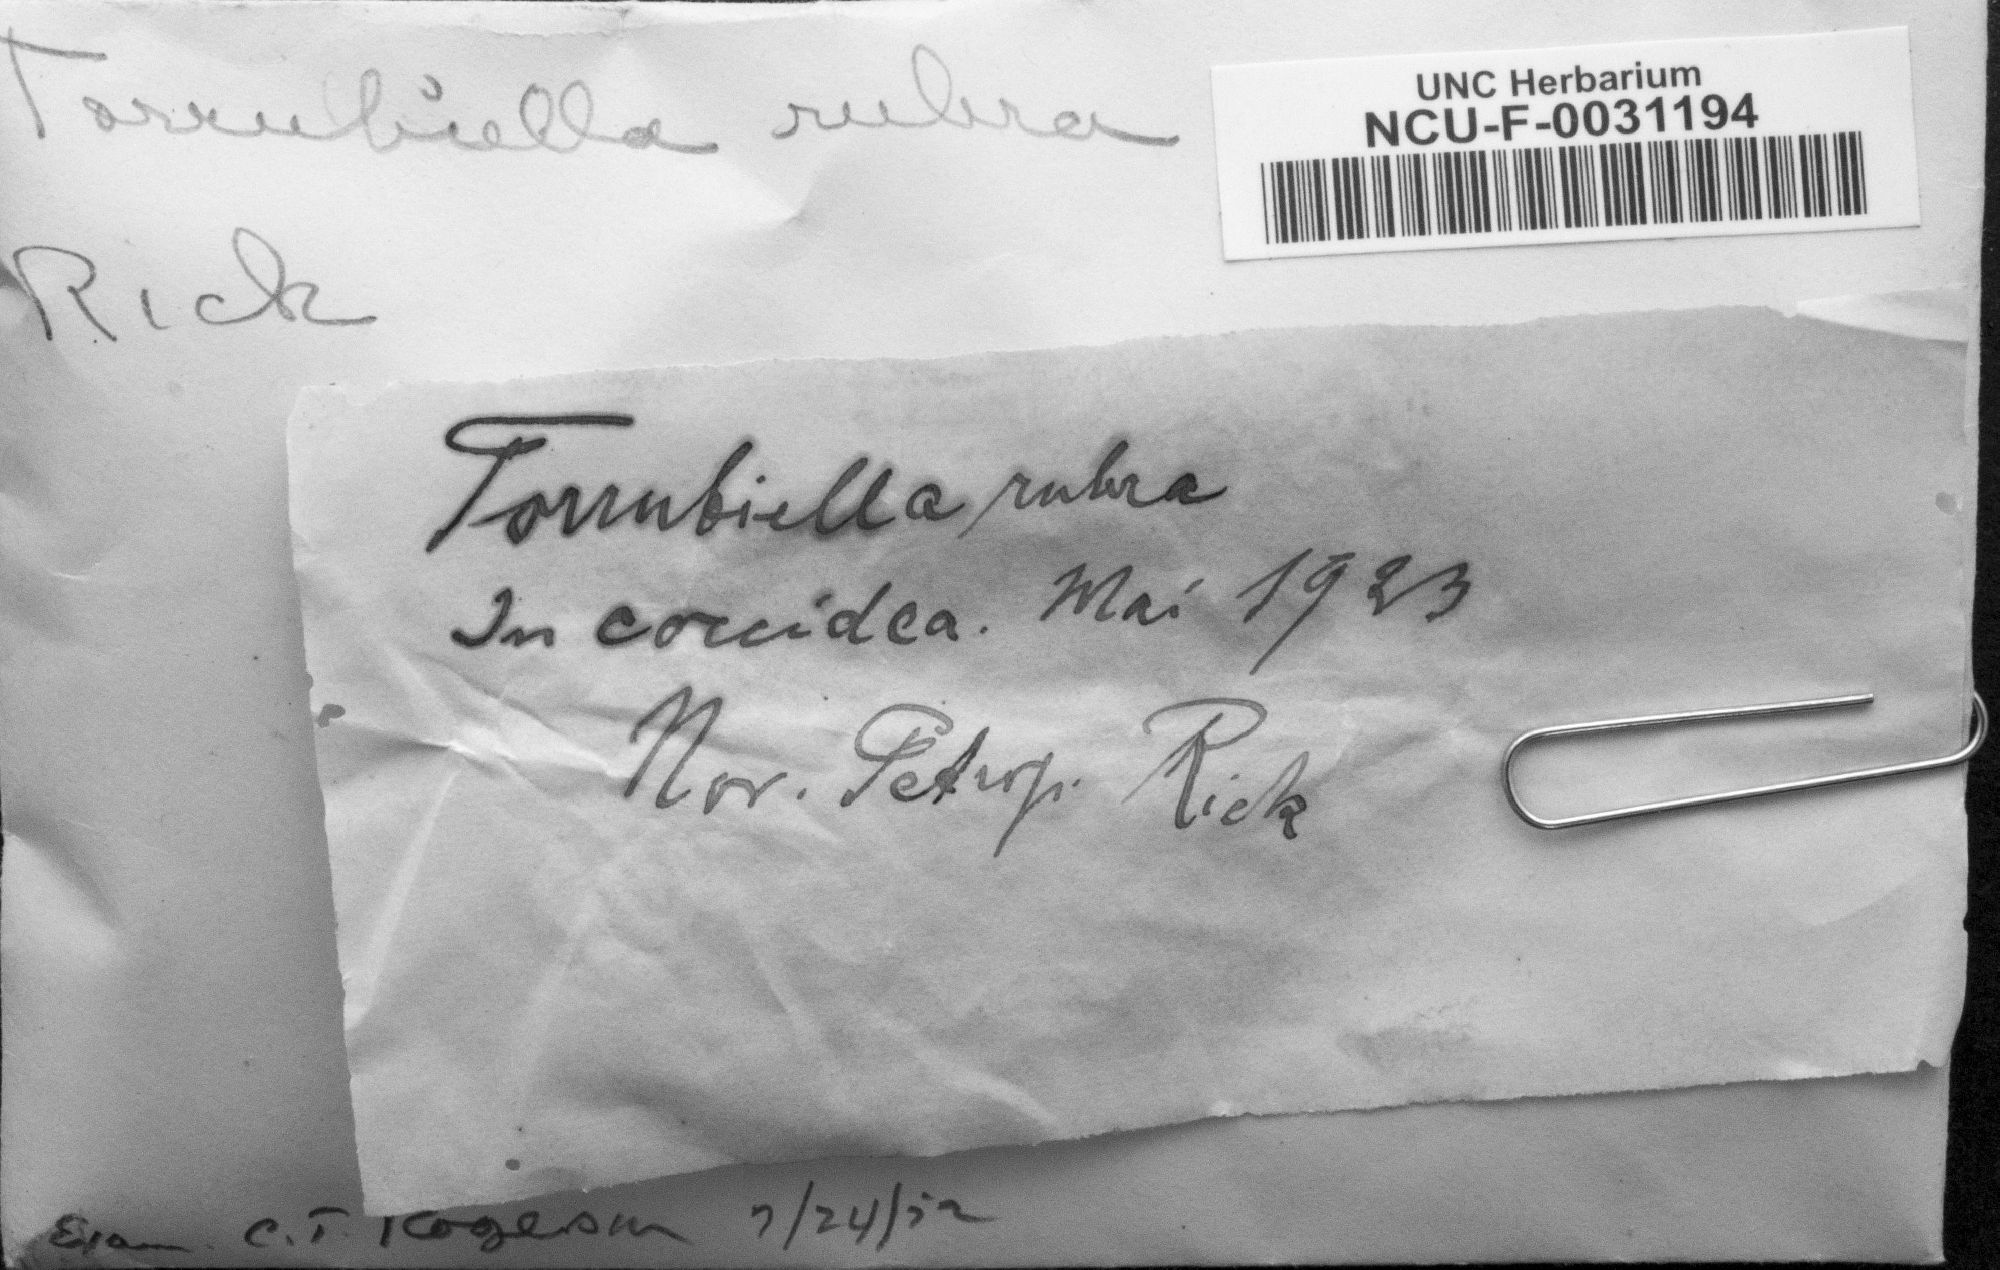 Torrubiella rubra
Rick
UNC Herbarium
NCU-F-0031194
Torrubiella rubra
In coccidea. Mai 1923
Nov. Petrop. Rick
Exam. C.T. Rogerson 7/24/52